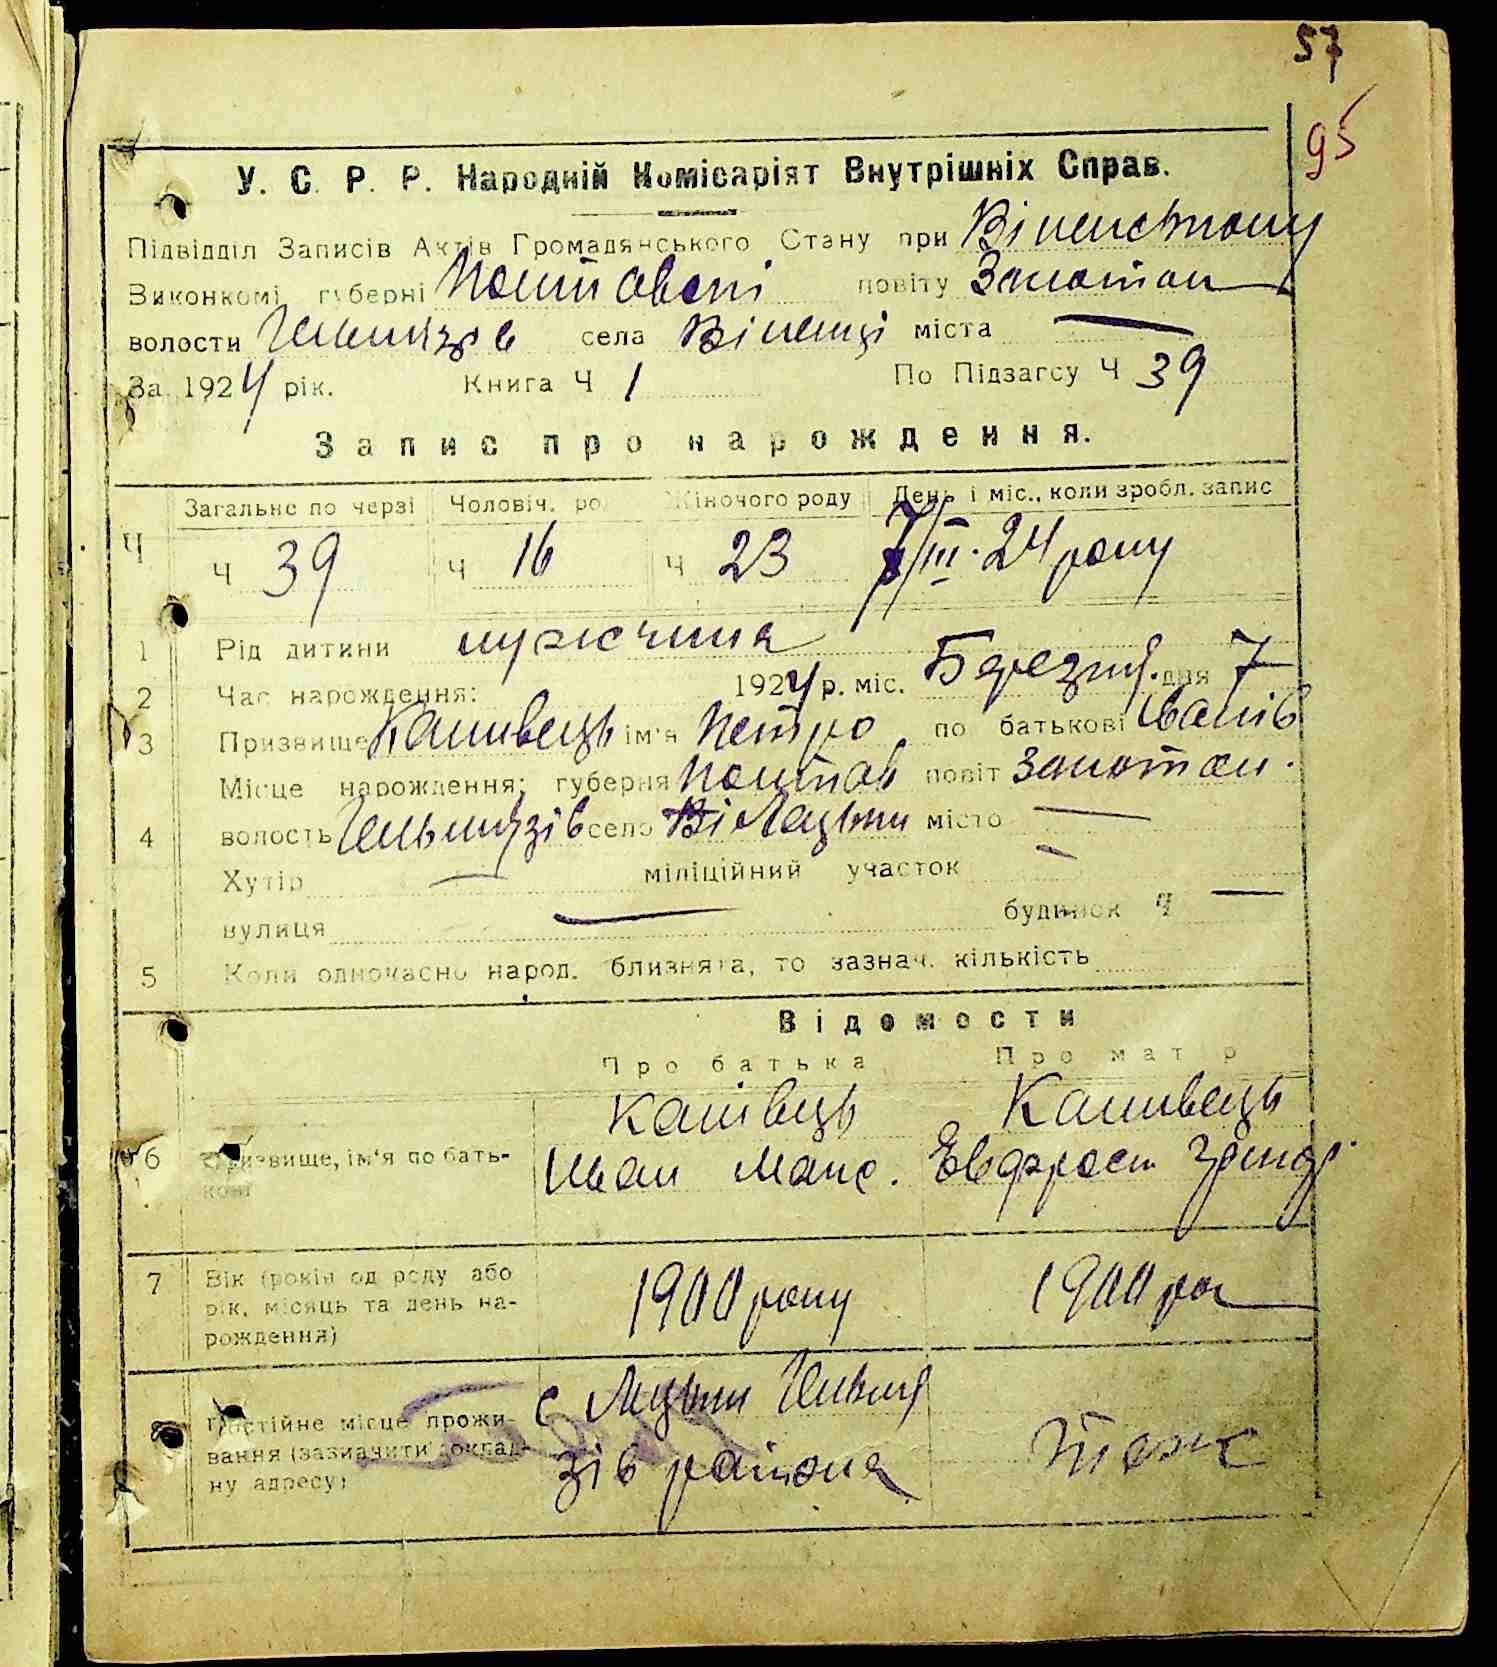 57
95
У. С. Р. Р. Народній Комісаріят Внутрішніх Справ.
Підвідділ Записів Актів Громадянського Стану при
Виконкомі губерні повіту Золотон
волости села міста —
За 1924 рік. Книга Ч 1 По Підзагсу Ч 39
Запис про народження.
Загальне по черзі Чоловіч. ро Жіночого роду День і міс., коли зробл. запис
Ч Ч 39 Ч 16 Ч 23 7/III-24 року
1 Рід дитини мужчина
2 Час народження: 1924 р. міс. Березня дня 7
3 Призвище Канивець ім'я Петро по батькові Іванів
Місце народження: губерня Полтав повіт Золотон.
4 волость село місто —
Хутір — міліційний участок —
вулиця — будинок Ч —
5 Коли одночасно народ. близнята, то зазнач. кількість
Відомости
Про батька Про мат р
Канівець Канивець
6 Призвище, ім'я по бать- Иван Макс. Евфрос Григор.
кові
7 Вік (років од роду або 1900 року 1900 ро
рік, місяць та день на-
рождення)
8 Постійне місце прожи- с
вання (зазначити доклад- зів района тож
ну адресу)